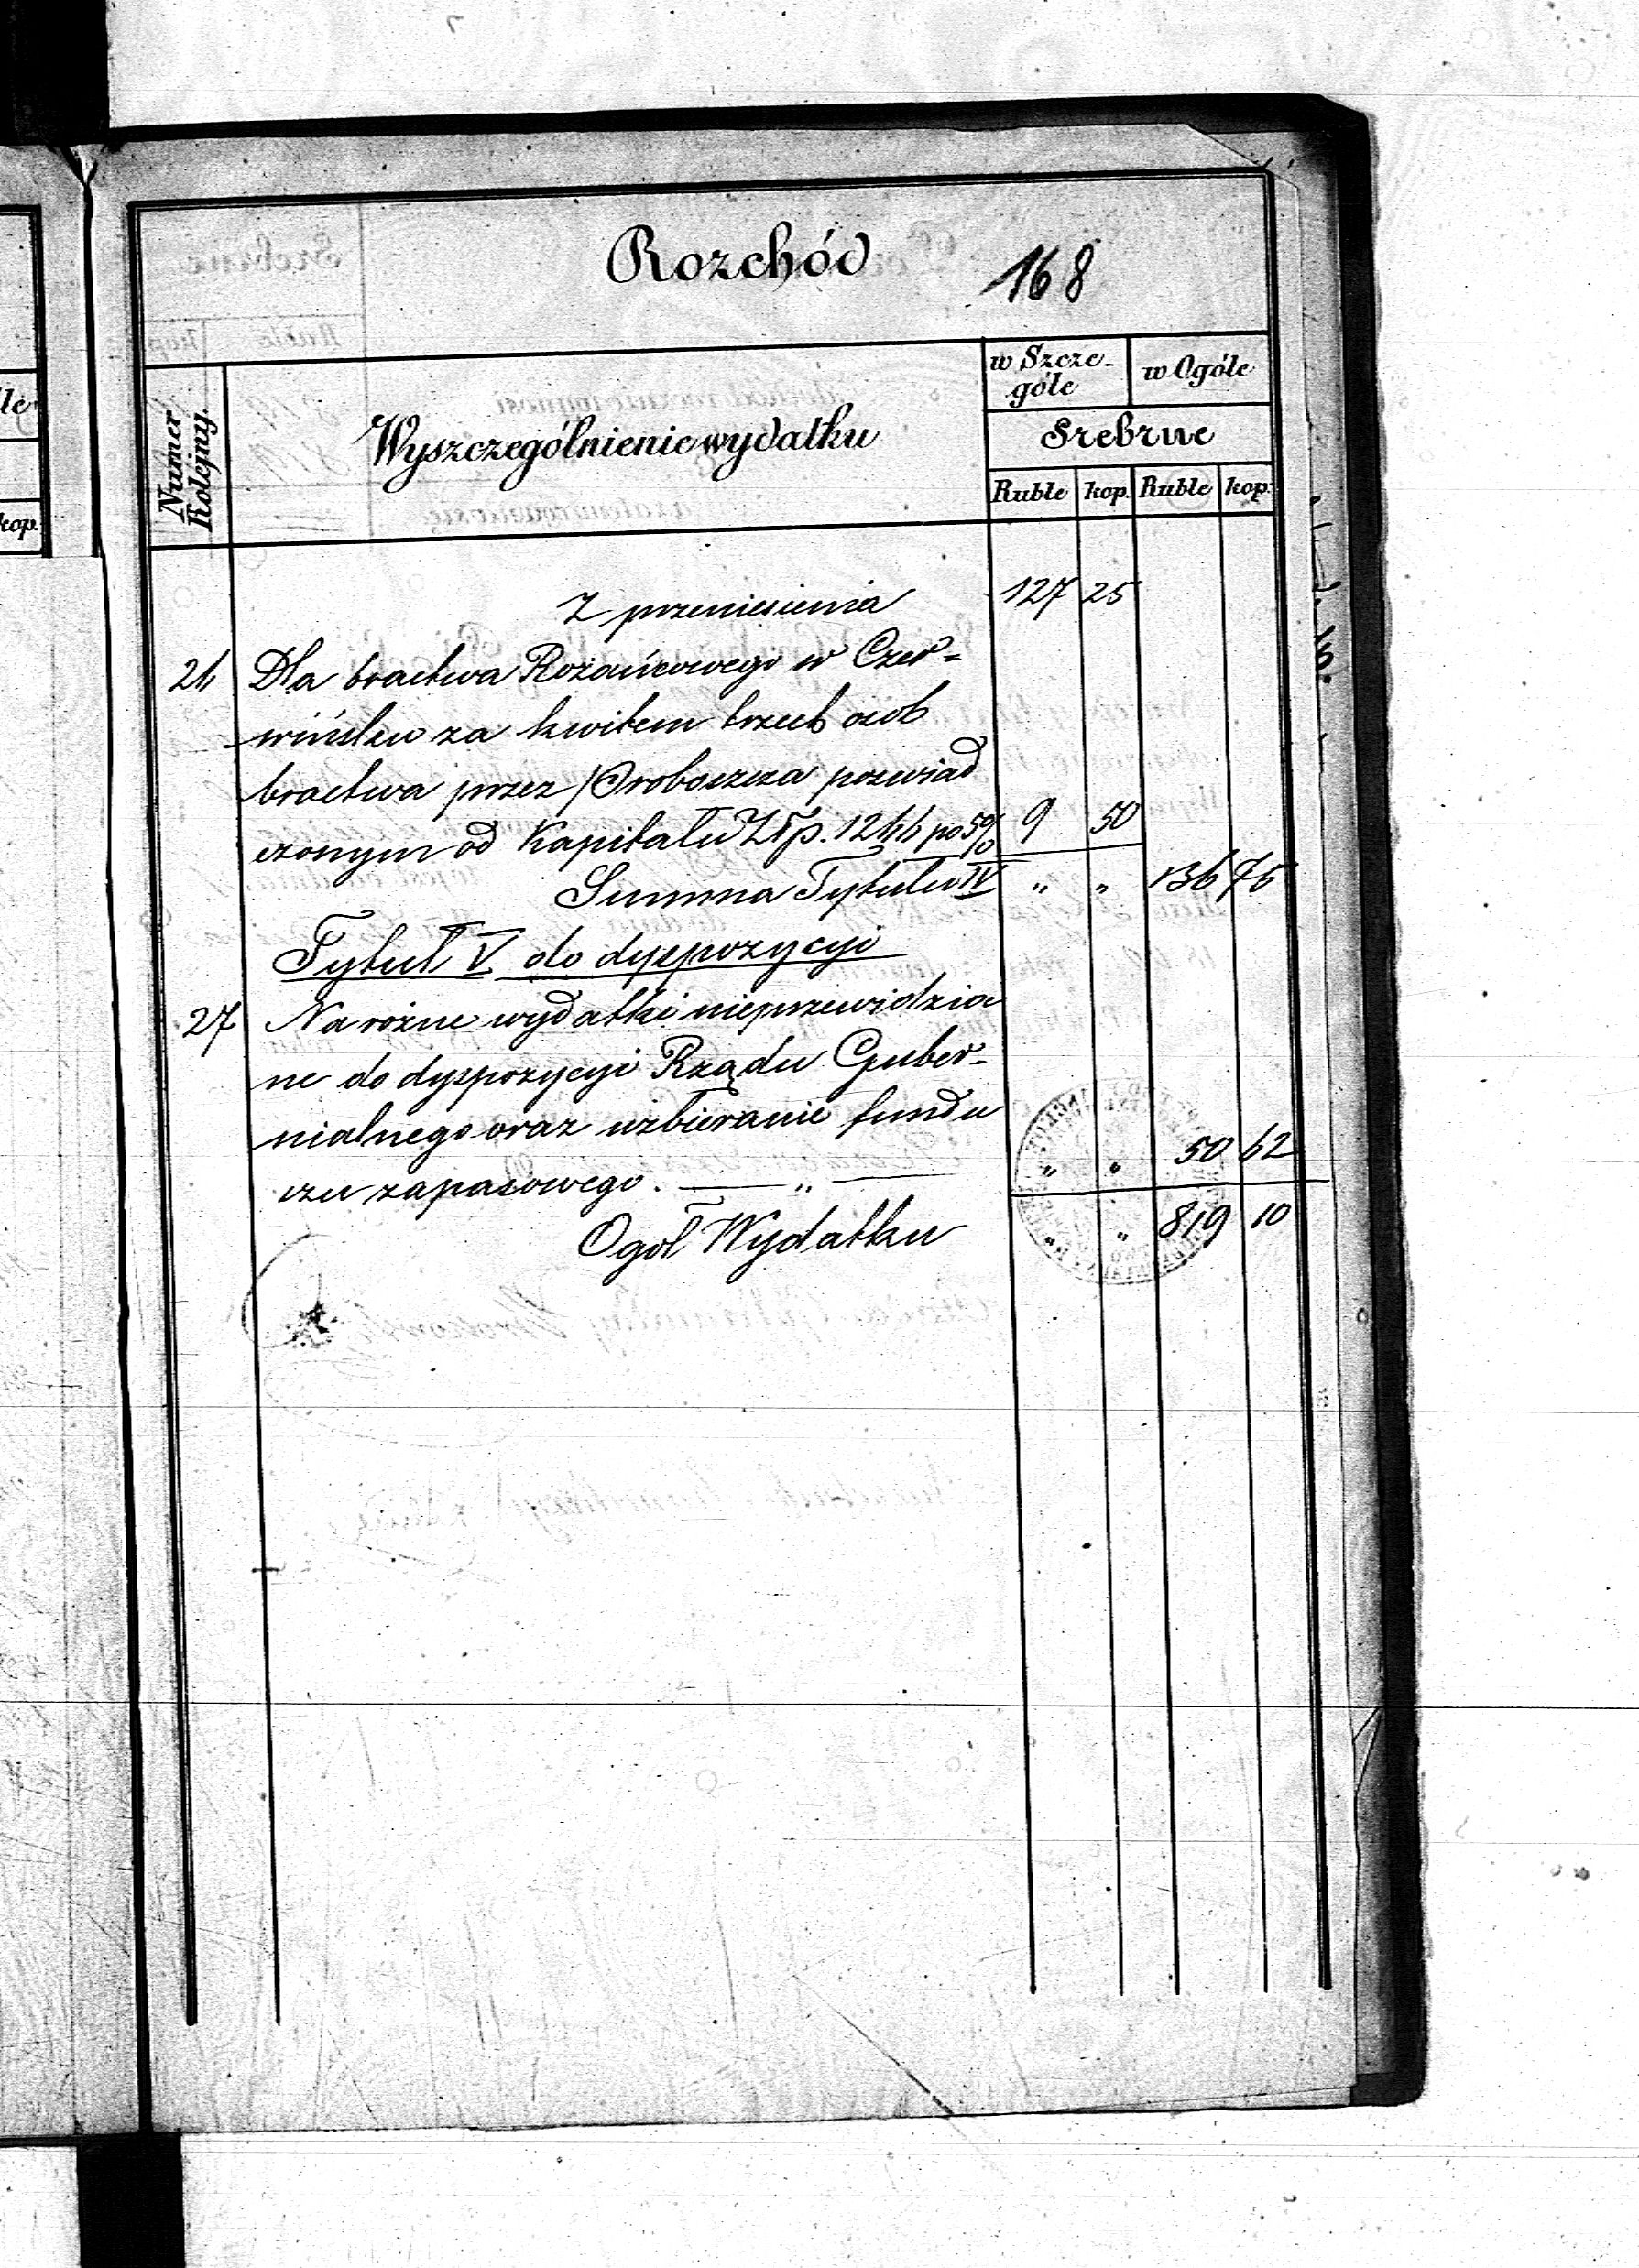 Rozchód 168
Numer Kolejny.
Wyszczególnienie wydatku
w Szcze-
góle
w Ogóle
Srebrne
Ruble kop. Ruble kop.
Z przeniesienia 127 25
26 Dla bractwa Rożańcowego w Czer=
wińsku za kwitem trzech osob
bractwa przez Proboszcza poswiad
czonym od Kapitału Złp. 1266 po 5% 9 50
Summa Tytułu IV " " 136 75
Tytuł V do dyspozycyi
27 Na rożne wydatki nieprzewidzia
ne do dyspozycyi Rządu Guber=
nialnego oraz uzbieranie fundu
szu zapasowego. — " — " " 50 62
Ogoł Wydatku " " 819 10